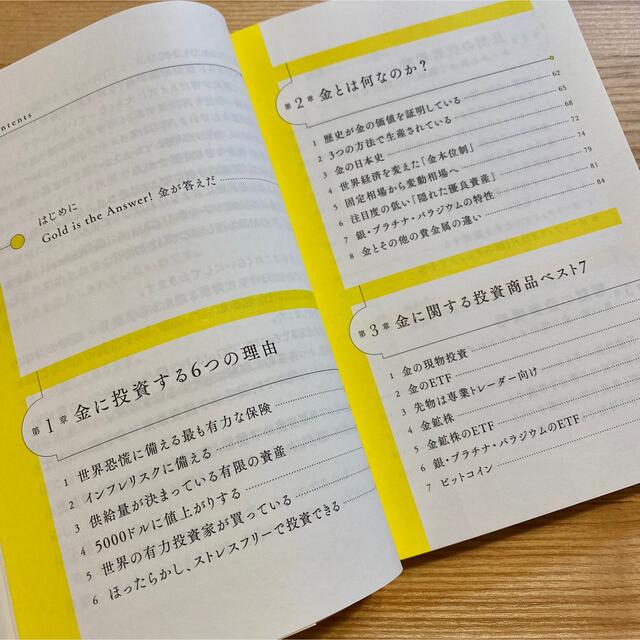 ntents
はじめに
Gold is the Answer! 金が答えだ
第1章 金に投資する6つの理由
1 世界恐慌に備える最も有力な保険
2 インフレリスクに備える
3 供給量が決まっている有限の資産
4 5000ドルに値上がりする
5 世界の有力投資家が買っている
6 ほったらかし、ストレスフリーで投資できる
第2章 金とは何なのか?
1 歴史が金の価値を証明している 62
2 3つの方法で生産されている 65
3 金の日本史 68
4 世界経済を変えた「金本位制」 72
5 固定相場から変動相場へ 74
6 注目度の低い「隠れた優良資産」 79
7 銀・プラチナ・パラジウムの特性 81
8 金とその他の貴金属の違い 84
第3章 金に関する投資商品ベスト7
1 金の現物投資
2 金のETF
3 先物は専業トレーダー向け
4 金鉱株
5 金鉱株のETF
6 銀・プラチナ・パラジウムのETF
7 ビットコイン